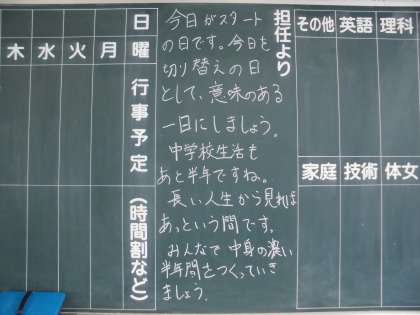 その他 英語 理科
家庭 技術 体女
担任より
今日がスタート
の日です。今日を
切り替えの日
として、意味のある
一日にしましょう。
中学校生活も
あと半年ですね。
長い人生から見れば
あっという間です。
みんなで中身の濃い
半年間をつくっていき
ましょう。
日曜 行事予定 (時間割など)
木 水 火 月